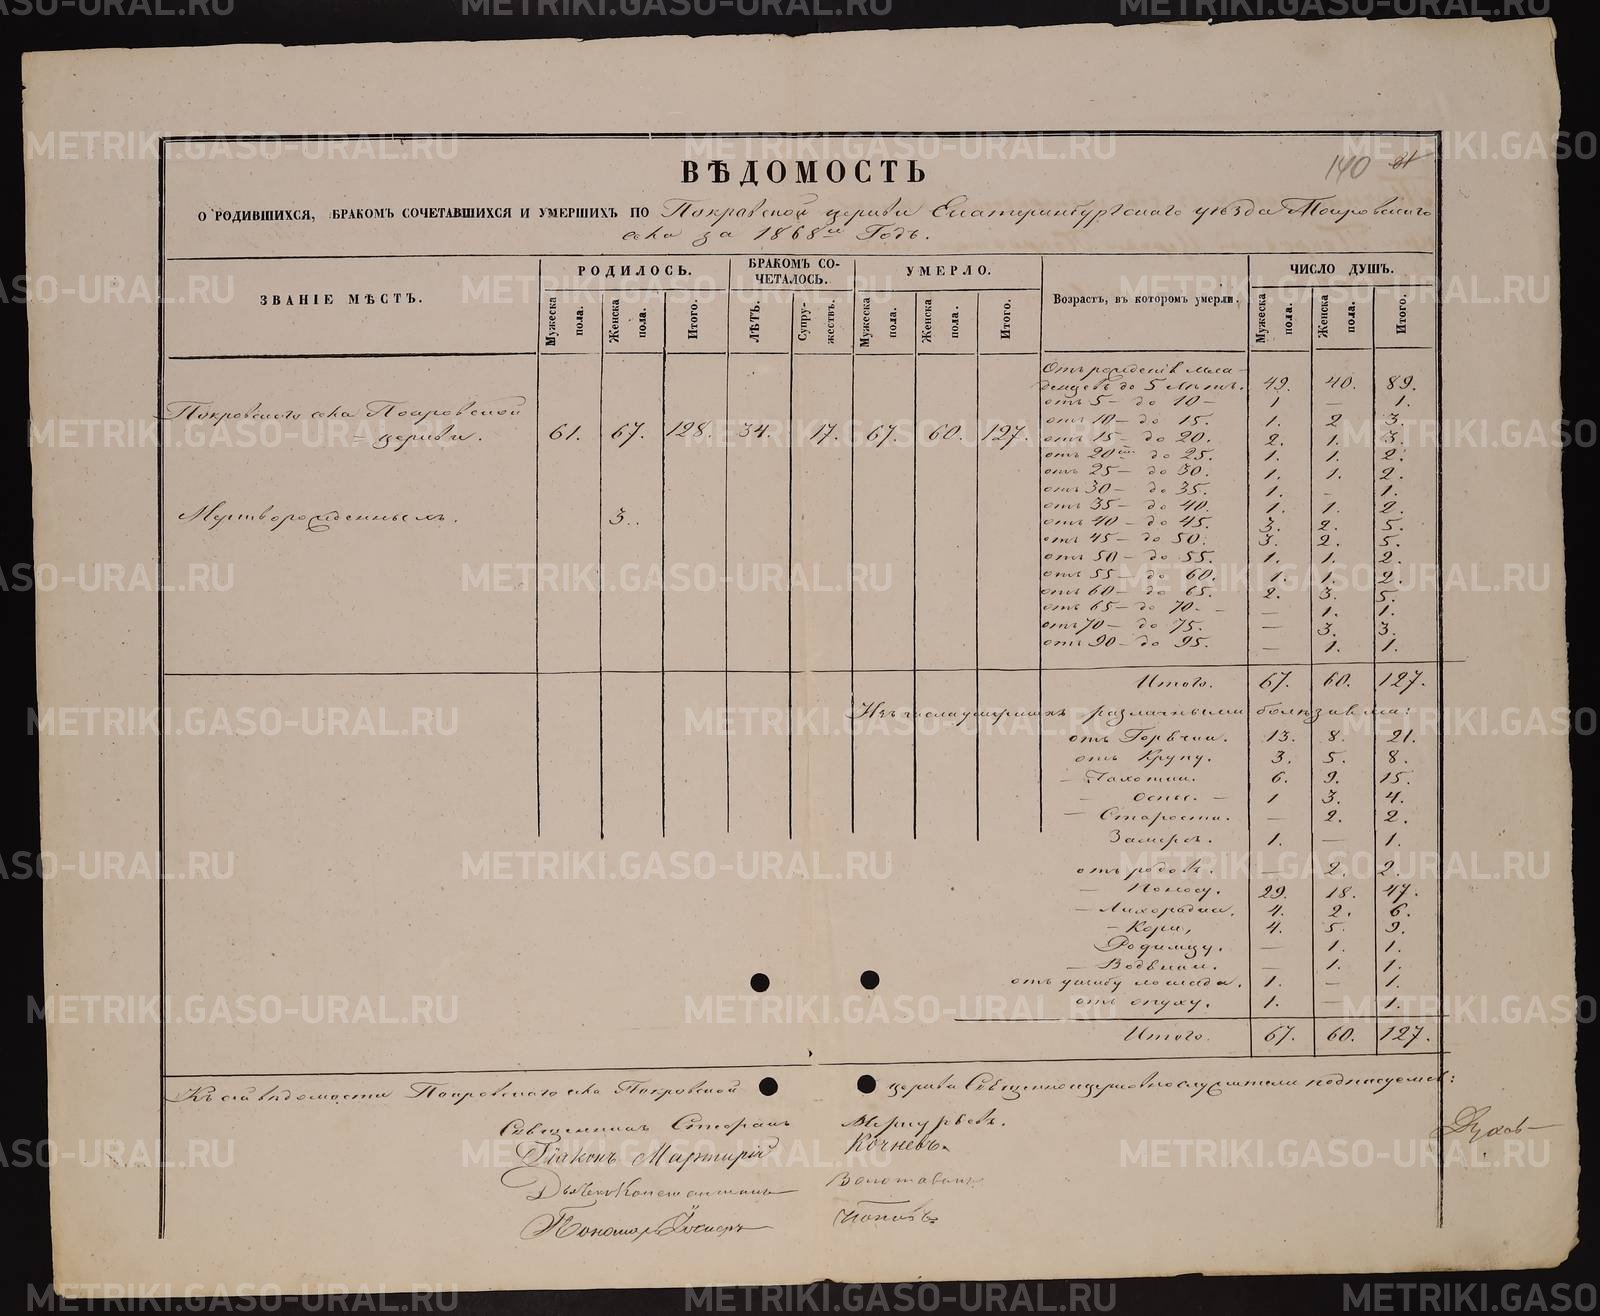 ВѢДОМОСТЬ
140
О РОДИВШИХСЯ, БРАКОМЪ СОЧЕТАВШИХСЯ И УМЕРШИХЪ ПО Покровской церкви Екатеринбургскаго уѣзда Покровскаго
села за 1868й Годъ.
ЗВАНІЕ МѢСТЪ. РОДИЛОСЬ. БРАКОМЪ СО-ЧЕТАЛОСЬ. УМЕРЛО. Возрастъ, въ которомъ умерли. ЧИСЛО ДУШЪ.
Мужеска пола. Женска пола. Итого. ЛѢТЪ. Супру-жествъ. Мужеска пола. Женска пола. Итого. Мужеска пола. Женска пола. Итого.
Отъ рожденія мла-
денцевъ до 5 лѣтъ. 49. 40. 89.
отъ 5 – до 10 – 1 — 1.
Покровскаго села Покровской
отъ 10 – до 15. 1. 2 3.
– церкви. 61. 67. 128. 34. 17. 67. 60. 127. отъ 15 – до 20. 2. 1. 3.
отъ 20ти до 25. 1. 1. 2.
отъ 25 – до 30. 1. 1. 2.
отъ 30 – до 35. 1. – 1.
отъ 35 – до 40. 1. 1. 2.
Мертворожденныхъ. 3..
отъ 40 – до 45. 3. 2. 5.
отъ 45 – до 50. 3. 2. 5.
отъ 50 – до 55. 1. 1. 2.
отъ 55 – до 60. 1. 1. 2.
отъ 60 – до 65. 2. 3. 5.
отъ 65 – до 70. – — 1. 1.
отъ 70 – до 75. — 3. 3.
отъ 90 – до 95. — 1. 1.
Итого. 67. 60. 127.
Изъ числа умершихъ различными болѣзнями:
отъ Горячки. 13. 8. 21.
отъ Крупу. 3. 5. 8.
– Чахотки. 6. 9. 15.
– оспы. – 1 3. 4.
– Старости. — 2. 2.
Замерзъ. 1. — 1.
отъ родовъ. — 2. 2.
– Поносу. 29. 18. 47.
– Лихорадки. 4. 2. 6.
– Кори, 4. 5. 9.
Родимцу. — 1. 1.
– Водянки. — 1. 1.
отъ ушибу лошади. 1. – 1.
отъ опуху. 1. — 1.
Итого. 67. 60. 127.
Къ сей вѣдомости Покровскаго села Покровской церкви Священноцерковнослужители подписуемся:
Священникъ Меркурьевъ.
Діаконъ Мартирій Кочневъ.
Дьячекъ Константинъ
Пономарь Поповъ
METRIKI.GASO-URAL.RU